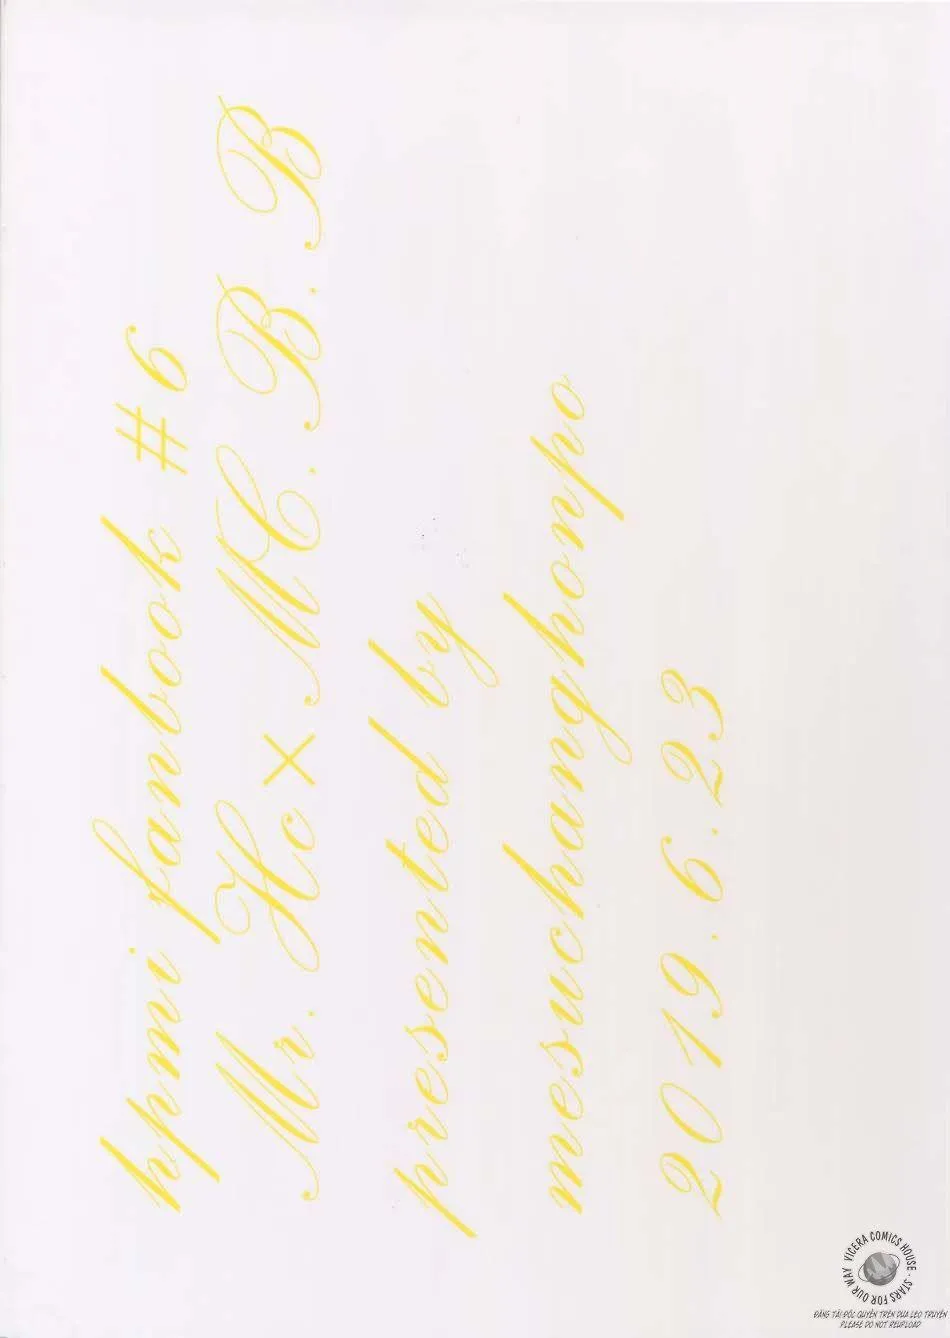 hpmi fanbook #6
Mr. Hc×MC.B.B
presented by
mesuchanghonpo
2019.6.23
VICERA COMICS HOUSE · STARS FOR OUR WAY
ĐĂNG TẢI ĐỘC QUYỀN TRÊN DUA LEO TRUYỆN
PLEASE DO NOT REUPLOAD